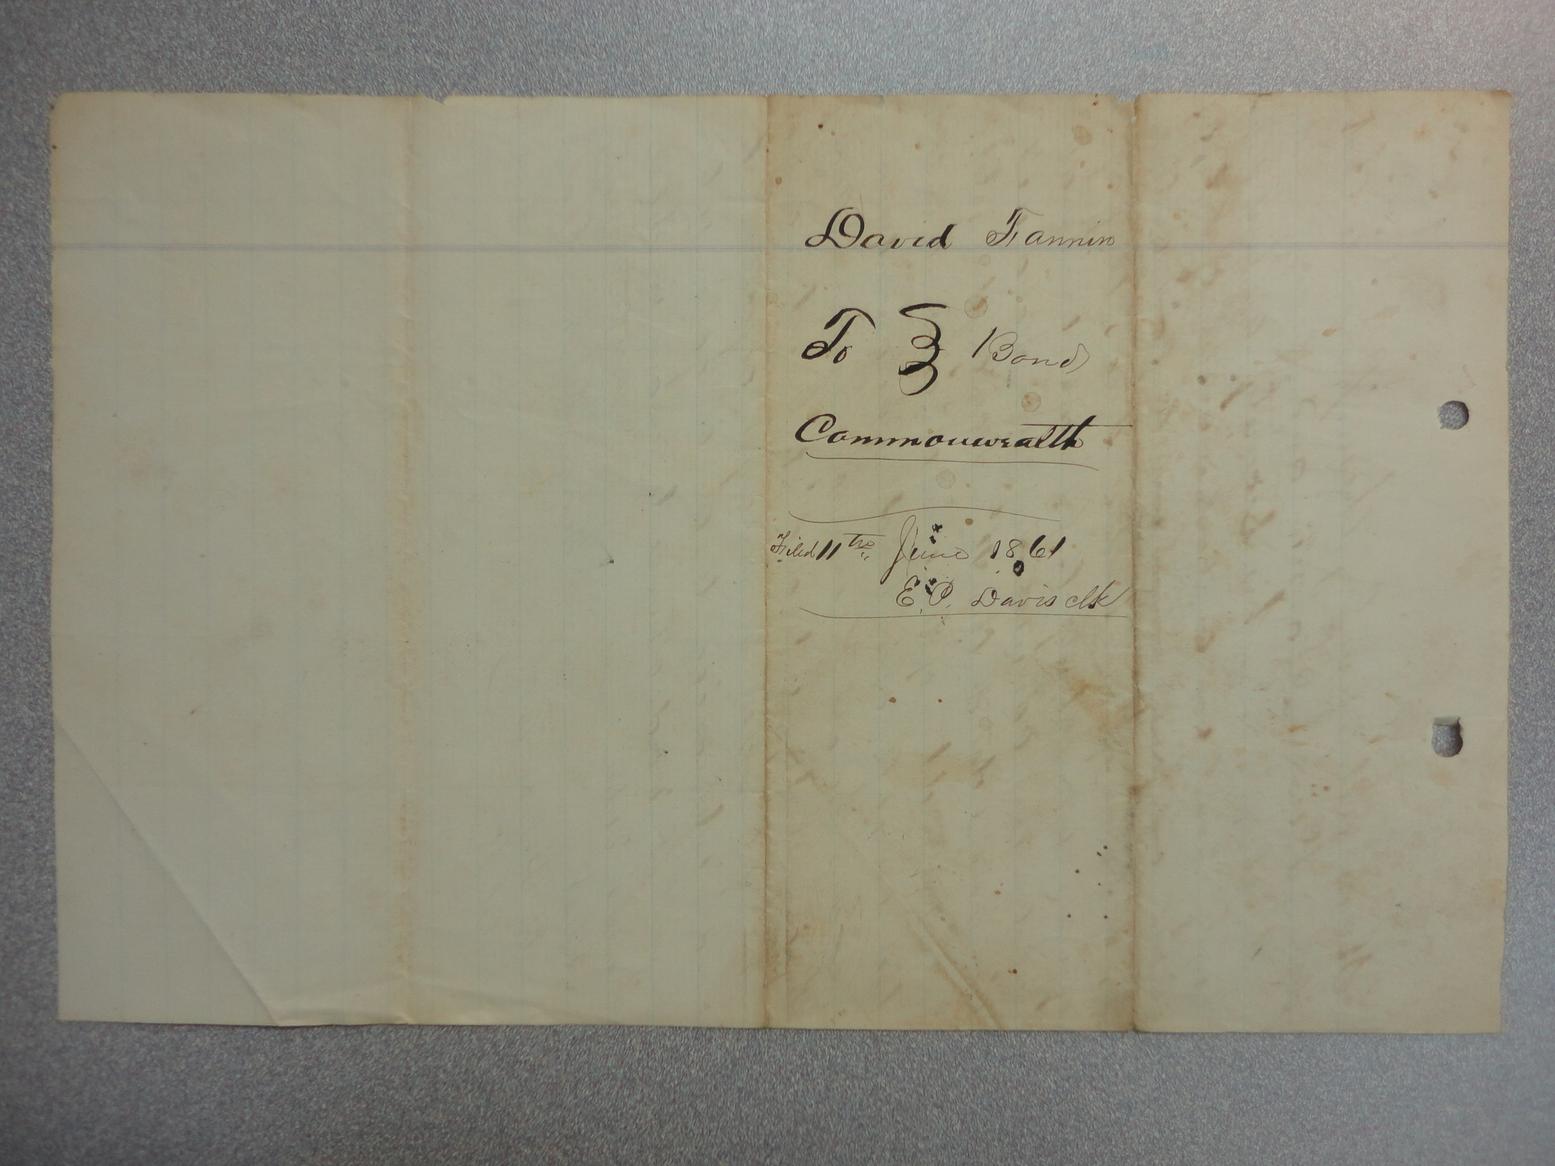 David Fannin
To } Bond
Commonwealth
Filed 11th June 1861
E. P. Davis clk